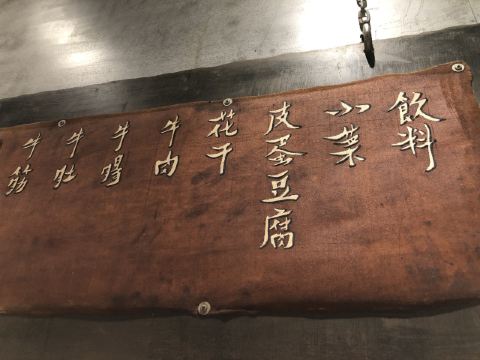 飲料
小菜
皮蛋豆腐
花干
牛肉
牛
牛肚
牛筋